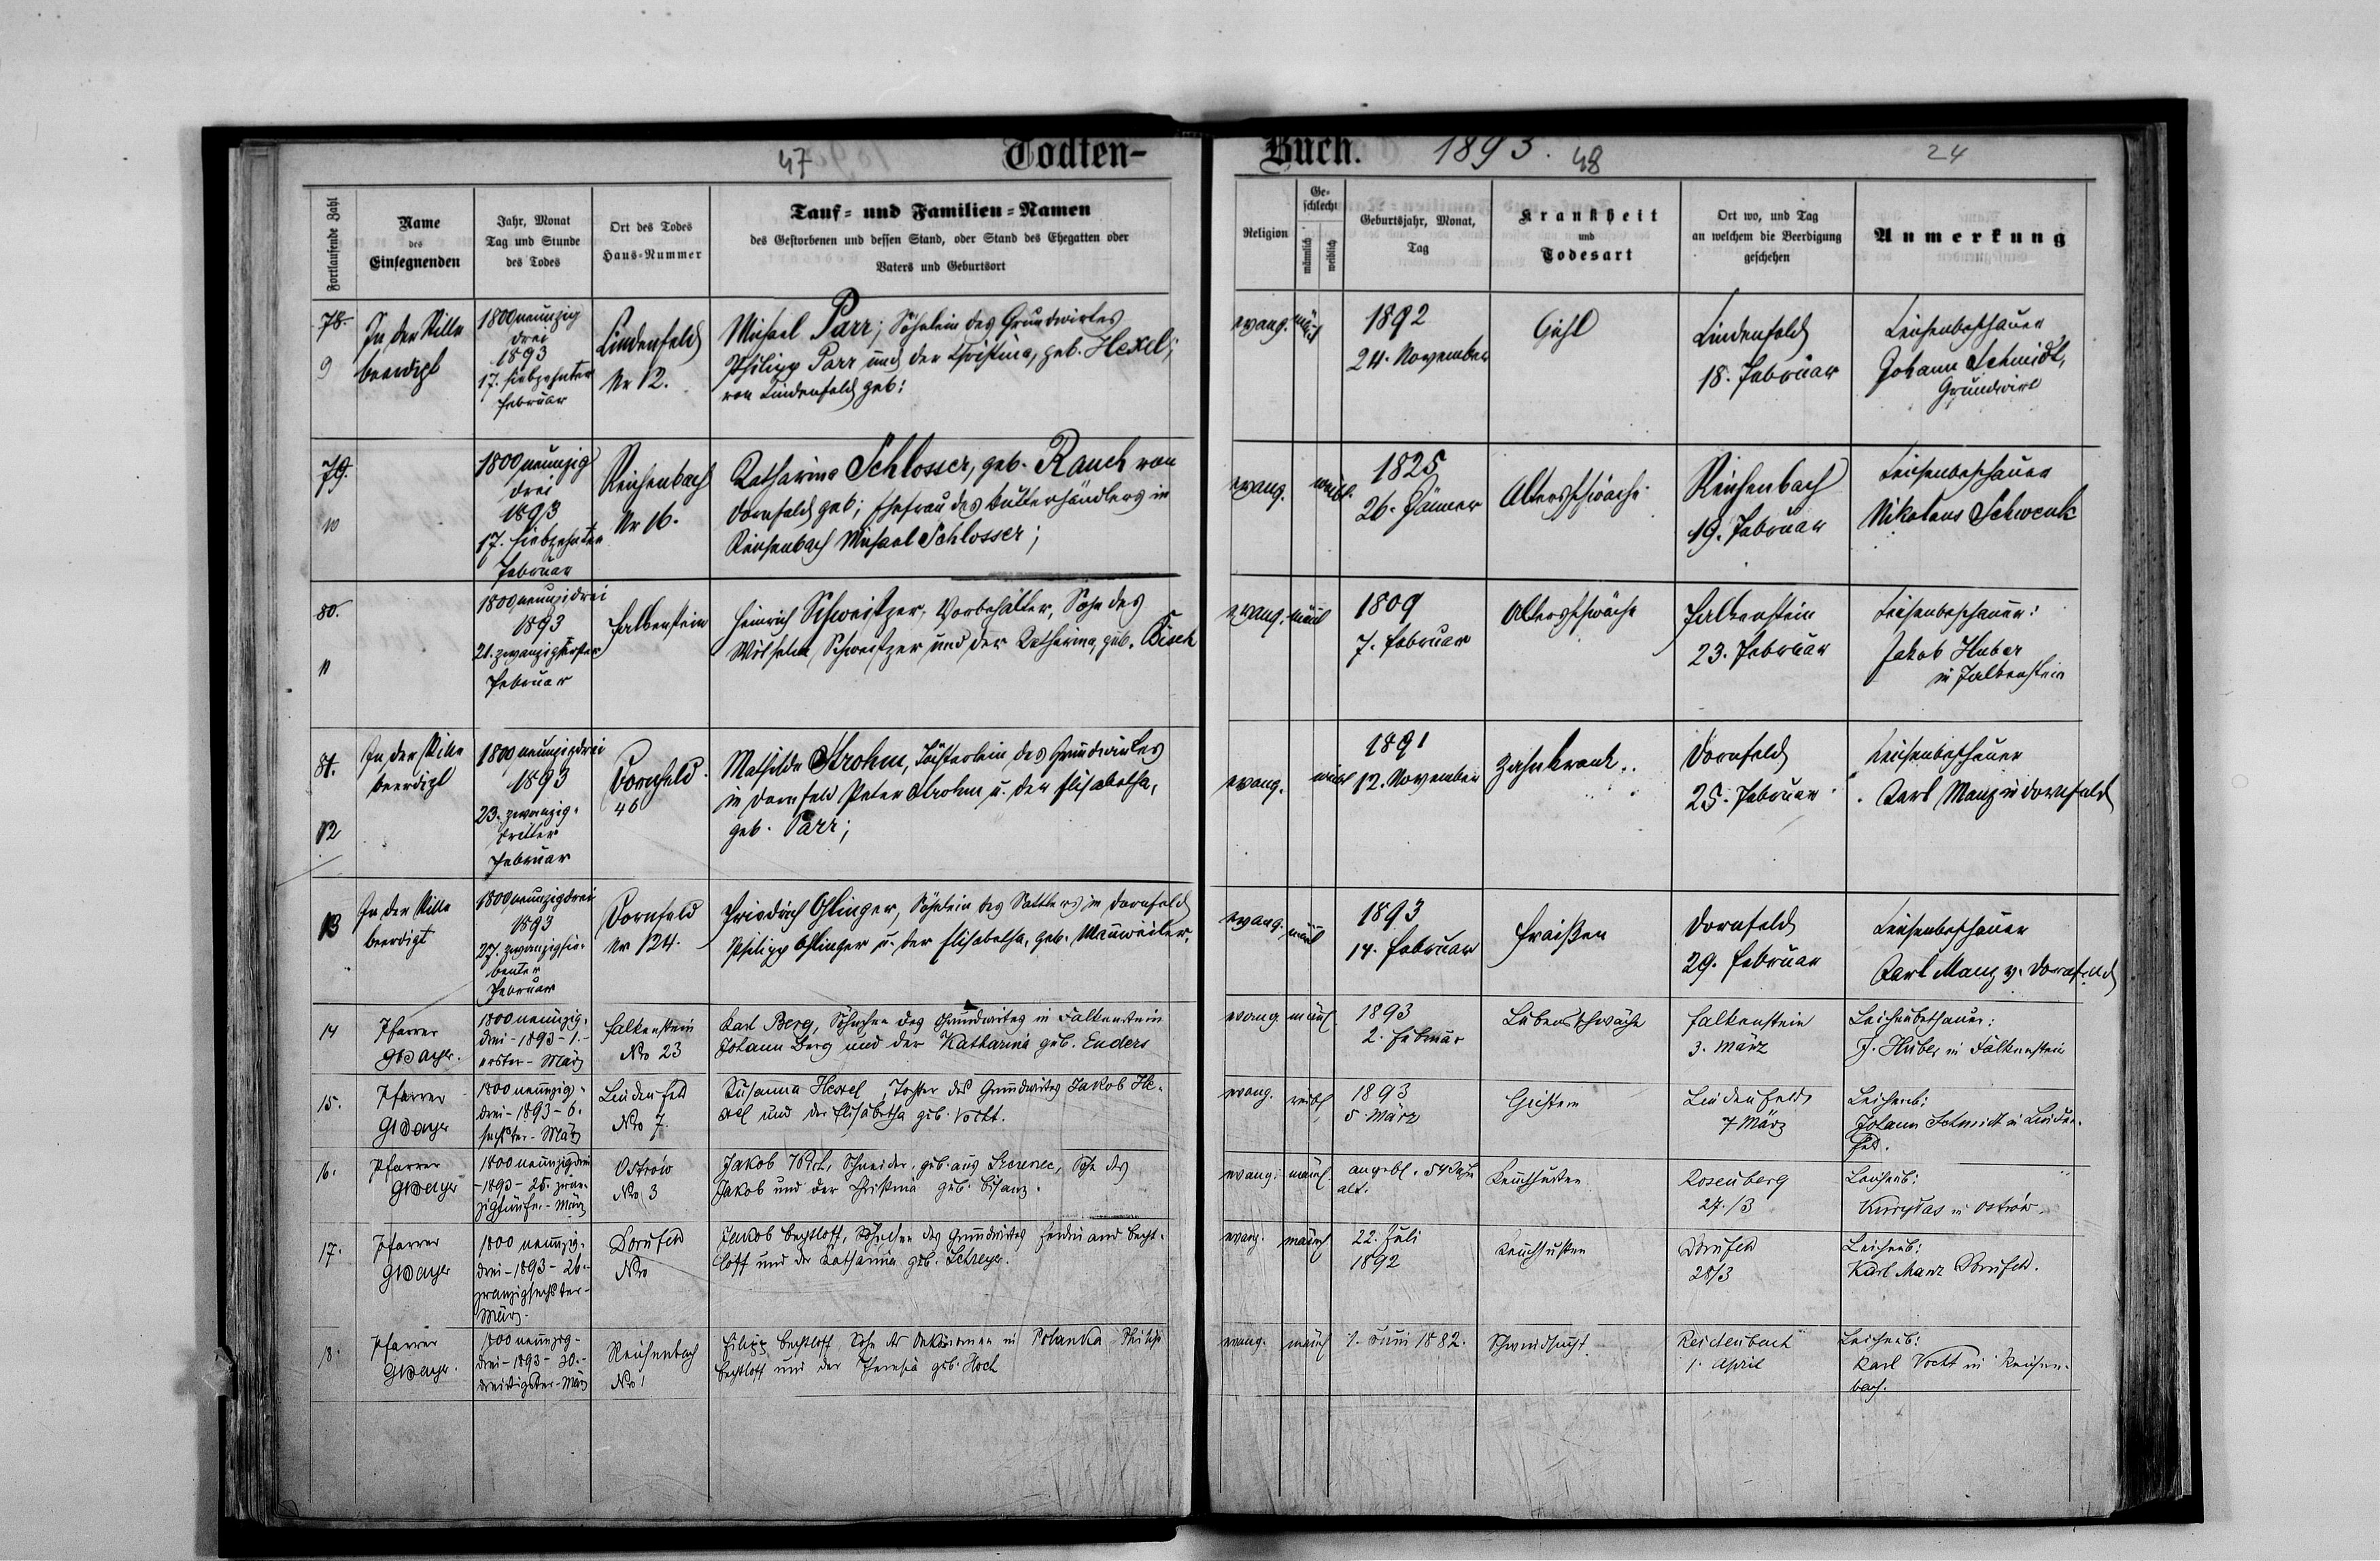 47
Todten-
Fortlaufende Zahl
Name
des
Einsegnenden
Jahr, Monat
Tag und Stunde
des Todes
Ort des Todes
Haus-Nummer
Tauf- und Familien-Namen
des Gestorbenen und dessen Stand, oder Stand des Ehegatten oder
Vaters und Geburtsort
78.
9
In der Stille
beerdigt
1800 neunzig
drei
1893
17. siebzehnter
Februar
Lindenfeld
Nr 12.
Michael Parr; Söhnlein des Grundwirtes
Philipp Parr und der Christina, geb. Hexel;
von Lindenfeld geb:
79.
10
1800 neunzig
drei
1893
17. siebzehnter
Februar
Reichenbach
Nr 16.
Katharina Schlosser, geb. Rauch von
Dornfeld geb; Ehefrau des Butterhändlers in
Reichenbach Michael Schlosser;
80.
11
1800 neunzidrei
1893
21. zwanzigerster
Februar
Falkenstein
Heinrich Schweitzer, Vorbehälter, Sohn des
Wilhelm Schweitzer und der Katharina, geb. Bisch
81.
12
In der Stille
beerdigt
1800 neunzigdrei
1893
23. zwanzig-
dritter
Februar
Dornfeld
46
Mathilde Strohm, Töchterlein des Grundwirtes
in Dornfeld Peter Strohm u. der Elisabetha,
geb. Parr;
13
In der Stille
beerdigt
1800 neunzigdrei
1893
27. zwanzigsie-
benter
Februar
Dornfeld
Nr 124.
Friedrich Ohlinger, Söhnlein des Sattlers in Dornfeld
Philipp Ohlinger u. der Elisabetha, geb. Manweiler.
14
Pfarrer
1800 neunzig-
drei - 1893 - 1.-
erster - März
Falkenstein
Nro 23
Karl Berg, Söhnchen des Grundwirtes in Falkenstein
Johann Berg und der Katharina geb. Enders
15.
Pfarrer
1800 neunzig-
drei - 1893 - 6.
sechster - März
Lindenfeld
Nro 7.
Susanna Hexel, Tochter des Grundwirtes Jakob He-
xel und der Elisabetha geb. Vocht.
16.
Pfarrer
1800 neunzigdrei
- 1893 - 25. zwan-
zigfünfter - März
Ostrów
Nro 3
Jakob Schneider, geb. aus Szczerzec, Sohn des
Jakob und der Christina geb. Bisanz.
17.
Pfarrer
1800 neunzig-
drei - 1893 - 26.-
zwanzigsechster -
März.
Dornfeld
Nro
Jakob Bechtloff, Söhnchen des Grundwirtes Ferdinand Becht-
loff und der Katharina geb. Schreyer.
18.
Pfarrer
1800 neunzig-
drei - 1893 - 30.-
dreißigster - März
Reichenbach
Nro 1
Filipp Bechtloff Sohn des Oekonomen in Polanka Philipp
Bechtloff und der Theresia geb. Hoch
Buch. 1893.
48
24
Religion
Ge-
schlecht
männlich
weiblich
Geburtsjahr, Monat,
Tag
Krankheit
und
Todesart
Ort wo, und Tag
an welchem die Beerdigung
geschehen
Anmerkung
evang.
1892
24. November
Lindenfeld
18. Februar
Leichenbeschauer
Johann Schmidt,
Grundwirt
evang.
weibl.
1825
26. Jänner
Altersschwäche
Reichenbach
19. Februar
Leichenbeschauer
Nikolaus Schwenk
evang.
männl
1809
7. Februar
Altersschwäche
Falkenstein
23. Februar
Leichenbeschauer:
Jakob Huber
in Falkenstein
evang.
weibl
1891
12. November
Zahnkrank.
Dornfeld
25. Februar
Leichenbeschauer
Karl Manz in Dornfeld
evang.
männl
1893
14. Februar
Fraißen
Dornfeld
29. Februar
Leichenbeschauer
Karl Manz v. Dornfeld
evang
männl
1893
2. Februar
Lebensschwäche
Falkenstein
3. März
Leichenbeschauer:
J. Huber in Falkenstein
evang.
weibl
1893
5 März
Lindenfeld
7 März
Leichenb:
Johann Schmidt in Linden-
feld.
evang.
männl
angebl. 54 Jahre
alt.
Keuchhusten
Rosenberg
27./3
Leichenb:
in Ostrów
evang.
männl
22. Juli
1892
Keuchhusten
Dornfeld
28/3
Leichenb:
Karl Manz Dornfeld.
evang.
männl
1. Juni 1882.
Schwindsucht
Reichenbach
1. April
Leichenb:
Karl Vocht in Reichen-
bach.